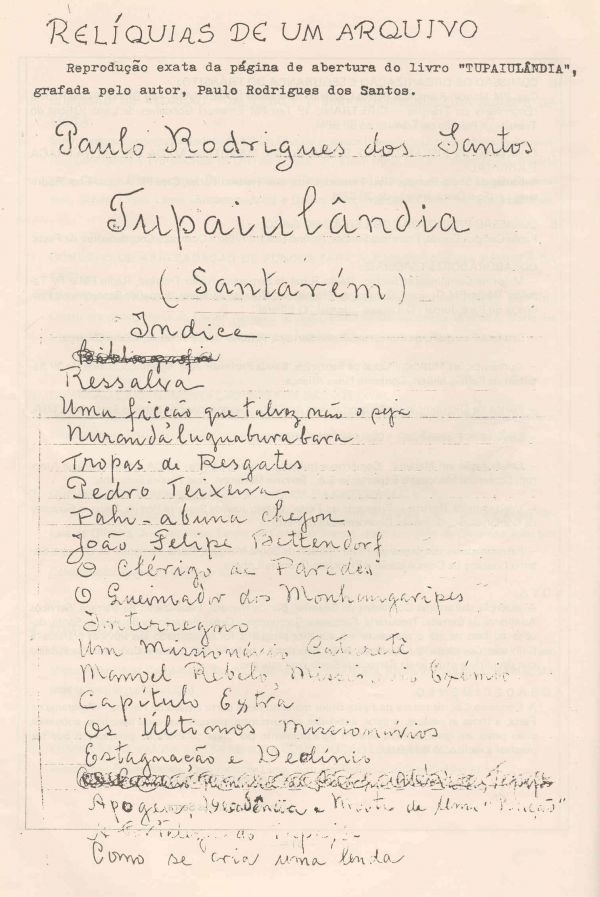 RELÍQUIAS DE UM ARQUIVO
Reprodução exata da página de abertura do livro "TUPAIULÂNDIA",
grafada pelo autor, Paulo Rodrigues dos Santos.
Paulo Rodrigues dos Santos
Tupaiulândia
(Santarém)
Indice
Ressalva
Uma ficção que talvez não o seja
Nurandáluguaburabara
Tropas de Resgates
Pedro Teixeira
Pahi-abuna chegou
João Felipe Bettendorf
O Clérigo de Paredes
O Queimador dos
Interregno
Um Missionário Cateretê
Manoel Rebelo, Exímio
Capítulo Extra
Os Últimos Missionários
Estagnação e Declínio
Apogeu, Decadência e Morte de uma
Como se cria uma lenda